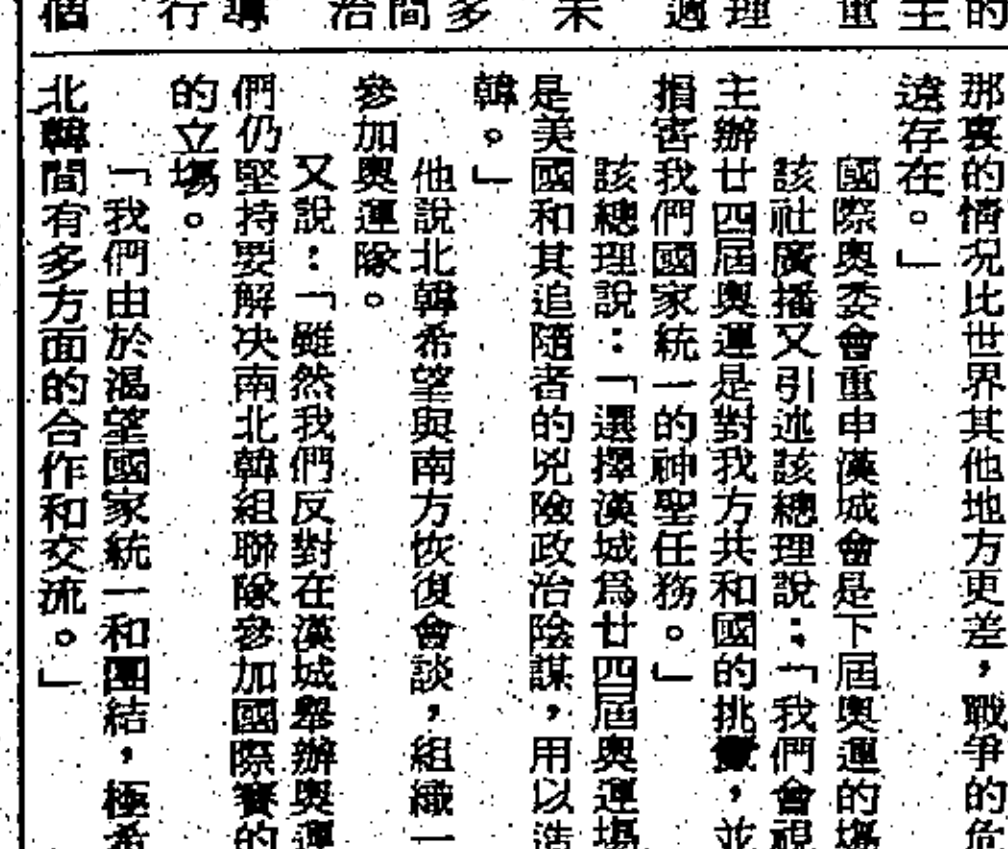 的
主
重
理
未
多
間
治
行
個
那裏的情况比世界其他地方更差，戰爭的危
遠存在。」
國際奧委會重申漢城會是下屆奧運的場
該社廣播又引述該總理說：「我們會視
主辦廿四屆奧運是對我方共和國的挑釁，並
損害我們國家統一的神聖任務。」
該總理說：「選擇漢城爲廿四屆奧運場
是美國和其追隨者的兇險政治陰謀，用以造
韓。」
他說北韓希望與南方恢復會談，組織一
參加奧運隊。
又說：「雖然我們反對在漢城舉辦奧運
們仍堅持要解决南北韓組聯隊參加國際賽的
的立場。
「我們由於渴望國家統一和團結，極希
北韓間有多方面的合作和交流。」